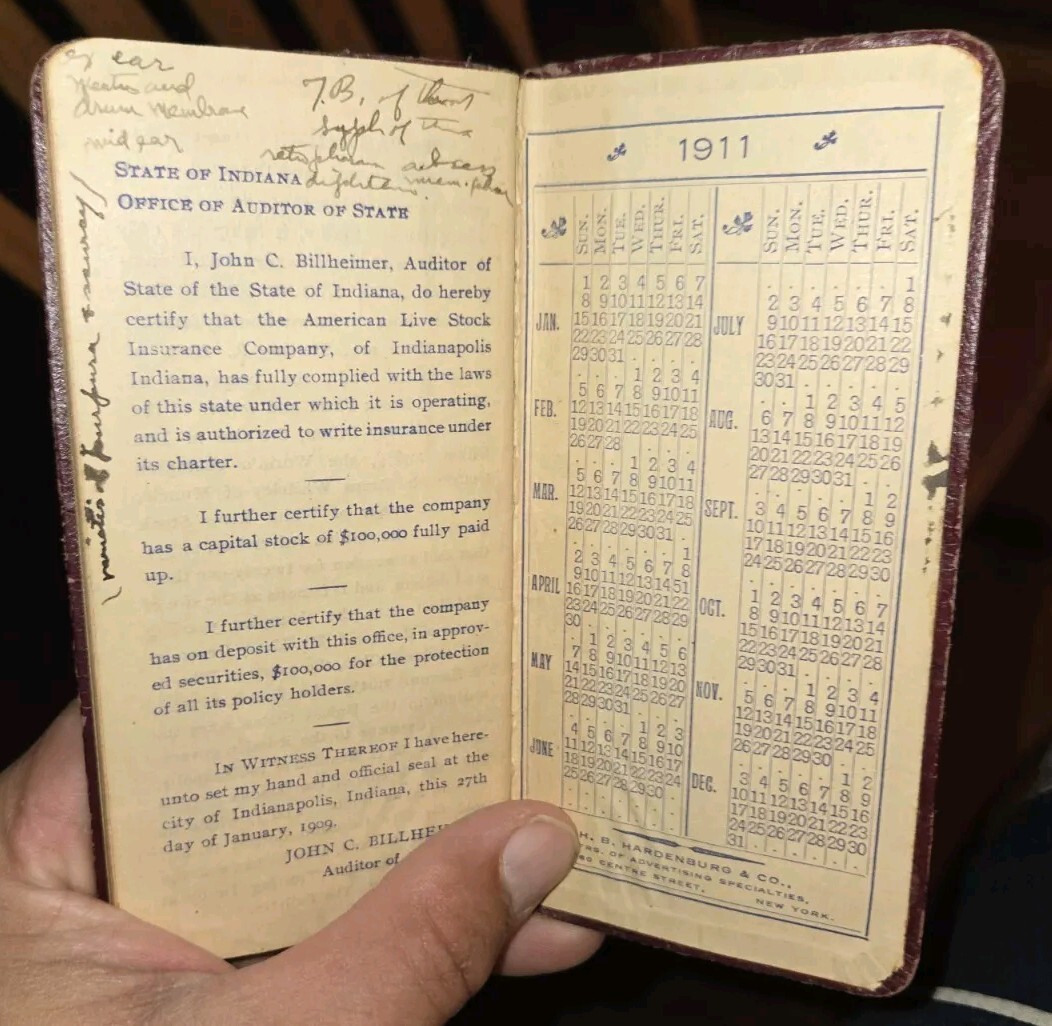 ear
meatus and
drum membrane
mid ear
T.B. of throat
Syph of
abscess
purpura
STATE OF INDIANA
OFFICE OF AUDITOR OF STATE
I, John C. Billheimer, Auditor of
State of the State of Indiana, do hereby
certify that the American Live Stock
Insurance Company, of Indianapolis
Indiana, has fully complied with the laws
of this state under which it is operating,
and is authorized to write insurance under
its charter.
I further certify that the company
has a capital stock of $100,000 fully paid
up.
I further certify that the company
has on deposit with this office, in approv-
ed securities, $100,000 for the protection
of all its policy holders.
IN WITNESS THEREOF I have here-
unto set my hand and official seal at the
city of Indianapolis, Indiana, this 27th
day of January, 1909.
JOHN C. BILLHE
Auditor of
1911
SUN. MON. TUE. WED. THUR. FRI. SAT.
JAN.
1 2 3 4 5 6 7
8 9 10 11 12 13 14
15 16 17 18 19 20 21
22 23 24 25 26 27 28
29 30 31 . . . .
FEB.
. . . 1 2 3 4
5 6 7 8 9 10 11
12 13 14 15 16 17 18
19 20 21 22 23 24 25
26 27 28
MAR.
. . . 1 2 3 4
5 6 7 8 9 10 11
12 13 14 15 16 17 18
19 20 21 22 23 24 25
26 27 28 29 30 31 .
APRIL
. . . . . . 1
2 3 4 5 6 7 8
9 10 11 12 13 14 51
16 17 18 19 20 21 22
23 24 25 26 27 28 29
30 . . . . . .
MAY
. 1 2 3 4 5 6
7 8 9 10 11 12 13
14 15 16 17 18 19 20
21 22 23 24 25 26 27
28 29 30 31 . . .
JUNE
. . . . 1 2 3
4 5 6 7 8 9 10
11 12 13 14 15 16 17
18 19 20 21 22 23 24
25 26 27 28 29 30 .
SUN. MON. TUE. WED. THUR. FRI. SAT.
JULY
. . . . . . 1
2 3 4 5 6 7 8
9 10 11 12 13 14 15
16 17 18 19 20 21 22
23 24 25 26 27 28 29
30 31 . . . . .
AUG.
. . 1 2 3 4 5
6 7 8 9 10 11 12
13 14 15 16 17 18 19
20 21 22 23 24 25 26
27 28 29 30 31 . .
SEPT.
. . . . . 1 2
3 4 5 6 7 8 9
10 11 12 13 14 15 16
17 18 19 20 21 22 23
24 25 26 27 28 29 30
OCT.
1 2 3 4 5 6 7
8 9 10 11 12 13 14
15 16 17 18 19 20 21
22 23 24 25 26 27 28
29 30 31 . . . .
NOV.
. . . 1 2 3 4
5 6 7 8 9 10 11
12 13 14 15 16 17 18
19 20 21 22 23 24 25
26 27 28 29 30 . .
DEC.
. . . . . 1 2
3 4 5 6 7 8 9
10 11 12 13 14 15 16
17 18 19 20 21 22 23
24 25 26 27 28 29 30
31 . . . . . .
H. B. HARDENBURG & CO.,
RS. OF ADVERTISING SPECIALTIES,
CENTRE STREET,
NEW YORK.